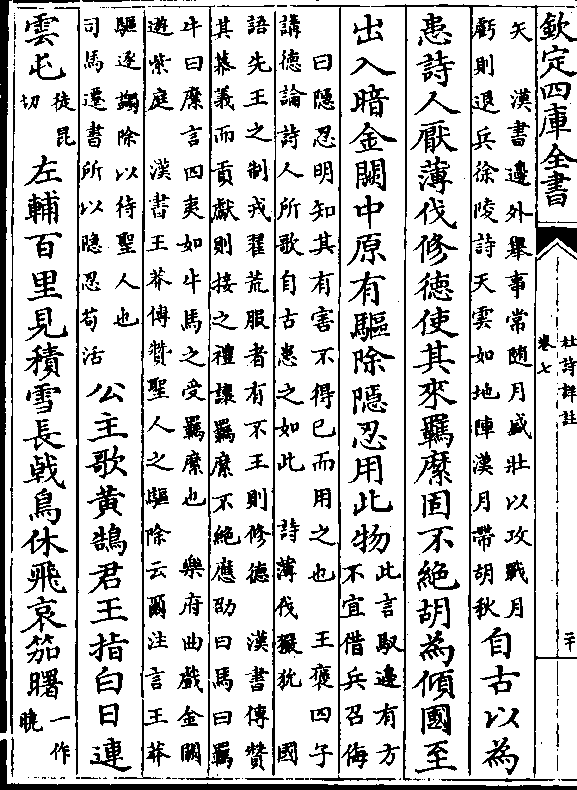 欽定四庫全書
杜詩詳註
卷七
二十
矢 漢書邊外舉事常随月盛壯以攻戰月
虧則退兵徐陵詩天雲如地陣漢月帶胡秋
自古以為
患詩人厭薄伐修德使其來羈縻固不絕胡為傾國至
出入暗金闕中原有驅除隱忍用此物
此言馭邊有方
不宜借兵召侮
曰隱忍明知其有害不得已而用之也 王褒四子
講德論詩人所歌自古患之如此 詩薄伐玁狁 國
語先王之制戎翟荒服者有不王則修德 漢書傳贊
其慕義而貢獻則接之禮讓羈縻不絕應劭曰馬曰羈
牛曰縻言四夷如牛馬之受羈縻也 樂府曲戲金闕
遊紫庭 漢書王莽傳贊聖人之驅除云爾注言王莽
驅逐蠲除以待聖人也
司馬遷書所以隱忍苟活
公主歌黃鵠君王指白日連
雲屯
徒昆
切
左輔百里見積雪長戟鳥休飛哀笳曙
一作
曉